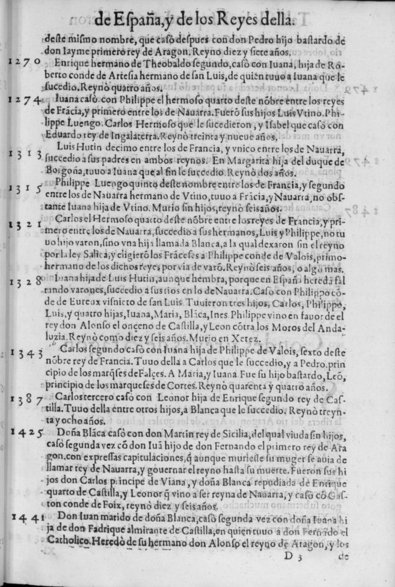 de España, y de los Reyes della.
deste mismo nombre, que casò despues con don Pedro hijo bastardo de
don Iayme primero rey de Aragon. Reyno diez y siete años.
1270 Enrique hermano de Theobaldo segundo, casò con Iuana, hija de Ro
berto conde de Artesia hermano de san Luis, de quien tuuo a Iuana que le
sucedio. Reynò quatro años.
1274 Iuana casò con Philippe el hermoso quarto deste nõbre entre los reyes
de Frãcia, y primero entre los de Nauarra. Fuerõ sus hijos Luis Vtino. Phi-
lippe Luengo. Carlos Hermoso que le sucedieron, y Isabel que casò con
Eduardo rey de Ingalaterra. Reynò treinta y nueue años.
1313 Luis Hutin decimo entre los de Francia, y vnico entre los de Nauarra,
succedio a sus padres en ambos reynos. En Margarita hija del duque de
Borgoña, tuuo a Iuana que al fin le sucedio. Reynò dos años.
1315 Philippe Luengo quinto deste nombre entre los de Francia, y segundo
entre los de Nauarra hermano de Vtino, tuuo a Frãcia, y Nauarra, no obs-
tante Iuana hija de Vtino. Murio sin hijos, reynò seis años.
1321 Carlos el Hermoso quarto deste nõbre entre los reyes de Francia, y pri-
mero entre los de Nauarra, succedio a sus hermanos, Luis y Philippe, no tu
uo hijo varon, sino vna hija llamada Blanca, a la qual dexaron sin el reyno
por la ley Salica, y eligierõ los Frãceses a Philippe conde de Valois, primo-
hermano de los dichos reyes, por via de varõ. Reynò seis años, o algo mas.
1328 Iuana hija de Luis Hutin, aunque hembra, porque en España hereda fal
tando varones, succedio a sus tios en lo de Nauarra. Casò con Philippe cõ-
de de Eureux visnieto de san Luis. Tuuieron tres hijos, Carlos, Philippe,
Luis, y quatro hijas, Iuana, Maria, Blãca, Ines Philippe vino en fauor de el
rey don Alonso el onceno de Castilla, y Leon cõtra los Moros del Anda-
luzia. Reynò como diez y seis años. Murio en Xerez.
1343 Carlos segundo casò con Iuana hija de Philippe de Valois, sexto deste
nõbre rey de Francia. Tuuo della a Carlos que le succedio, y a Pedro, prin
cipio de los marqses de Falces. A Maria, y Iuana Fue su hijo bastardo, Leõ,
principio de los marqueses de Cortes. Reynò quarenta y quatro años.
1387 Carlos tercero casò con Leonor hija de Enrique segundo rey de Cas-
tilla. Tuuo della entre otros hijos, a Blanca que le succedio. Reynò treyn-
ta y ocho años.
1425 Doña Blãca casò con don Martin rey de Sicilia, del qual viuda sin hijos,
casò segunda vez cõ don Iuã hijo de don Fernando el primero rey de Ara
gon, con expressas capitulaciones, q̃ aunque muriesse su muger se auia de
llamar rey de Nauarra, y gouernar el reyno hasta su muerte. Fueron sus hi
jos don Carlos principe de Viana, y doña Blanca repudiada de Enrique
quarto de Castilla, y Leonor q̃ vino a ser reyna de Nauarra, y caso cõ Gas-
ton conde de Foix, reyno diez y seis años.
1441 Don Iuan marido de doña Blanca, casò segunda vez con doña Iuana hi
ja de don Fadrique almirante de Castilla, en quien tuuo a don Fernãdo el
Catholico. Heredò de su hermano don Alonso el reyno de Aragon, y los
D 3 de